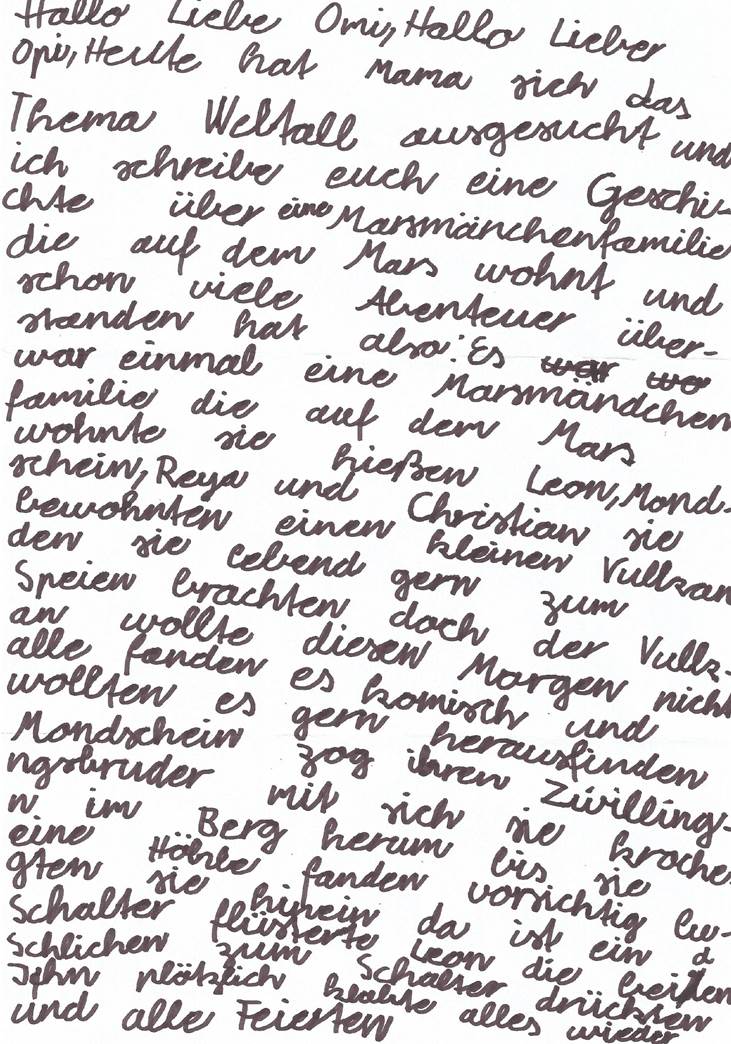 Hallo Liebe Omi, Hallo Lieber
Opi, Heute hat Mama sich das
Thema Weltall ausgesucht und
ich schreibe euch eine Geschi-
chte über eine Marsmänchenfamilie
die auf dem Mars wohnt und
schon viele Abenteuer über-
standen hat also: Es war wo
war einmal eine Marsmändchen
familie die auf dem Mars
wohnte sie hießen Leon, Mond-
schein, Reya und Christian sie
bewohnten einen kleinen Vullkan
den sie lebend gern zum
Speien brachten doch der Vullk-
an wollte diesen Morgen nicht
alle fanden es komisch und
wollten es gern herausfinden
Mondschein zog ihren Zwilling-
ngsbruder mit sich sie kroche
n im Berg herum bis sie
eine Höhle fanden vorsichtig lu-
gten sie hinein da ist ein
Schalter flüsterte Leon die beiden
Schlichen zum Schalter drückten
Ihn plötzlich klabte alles wieder
und alle Feierten